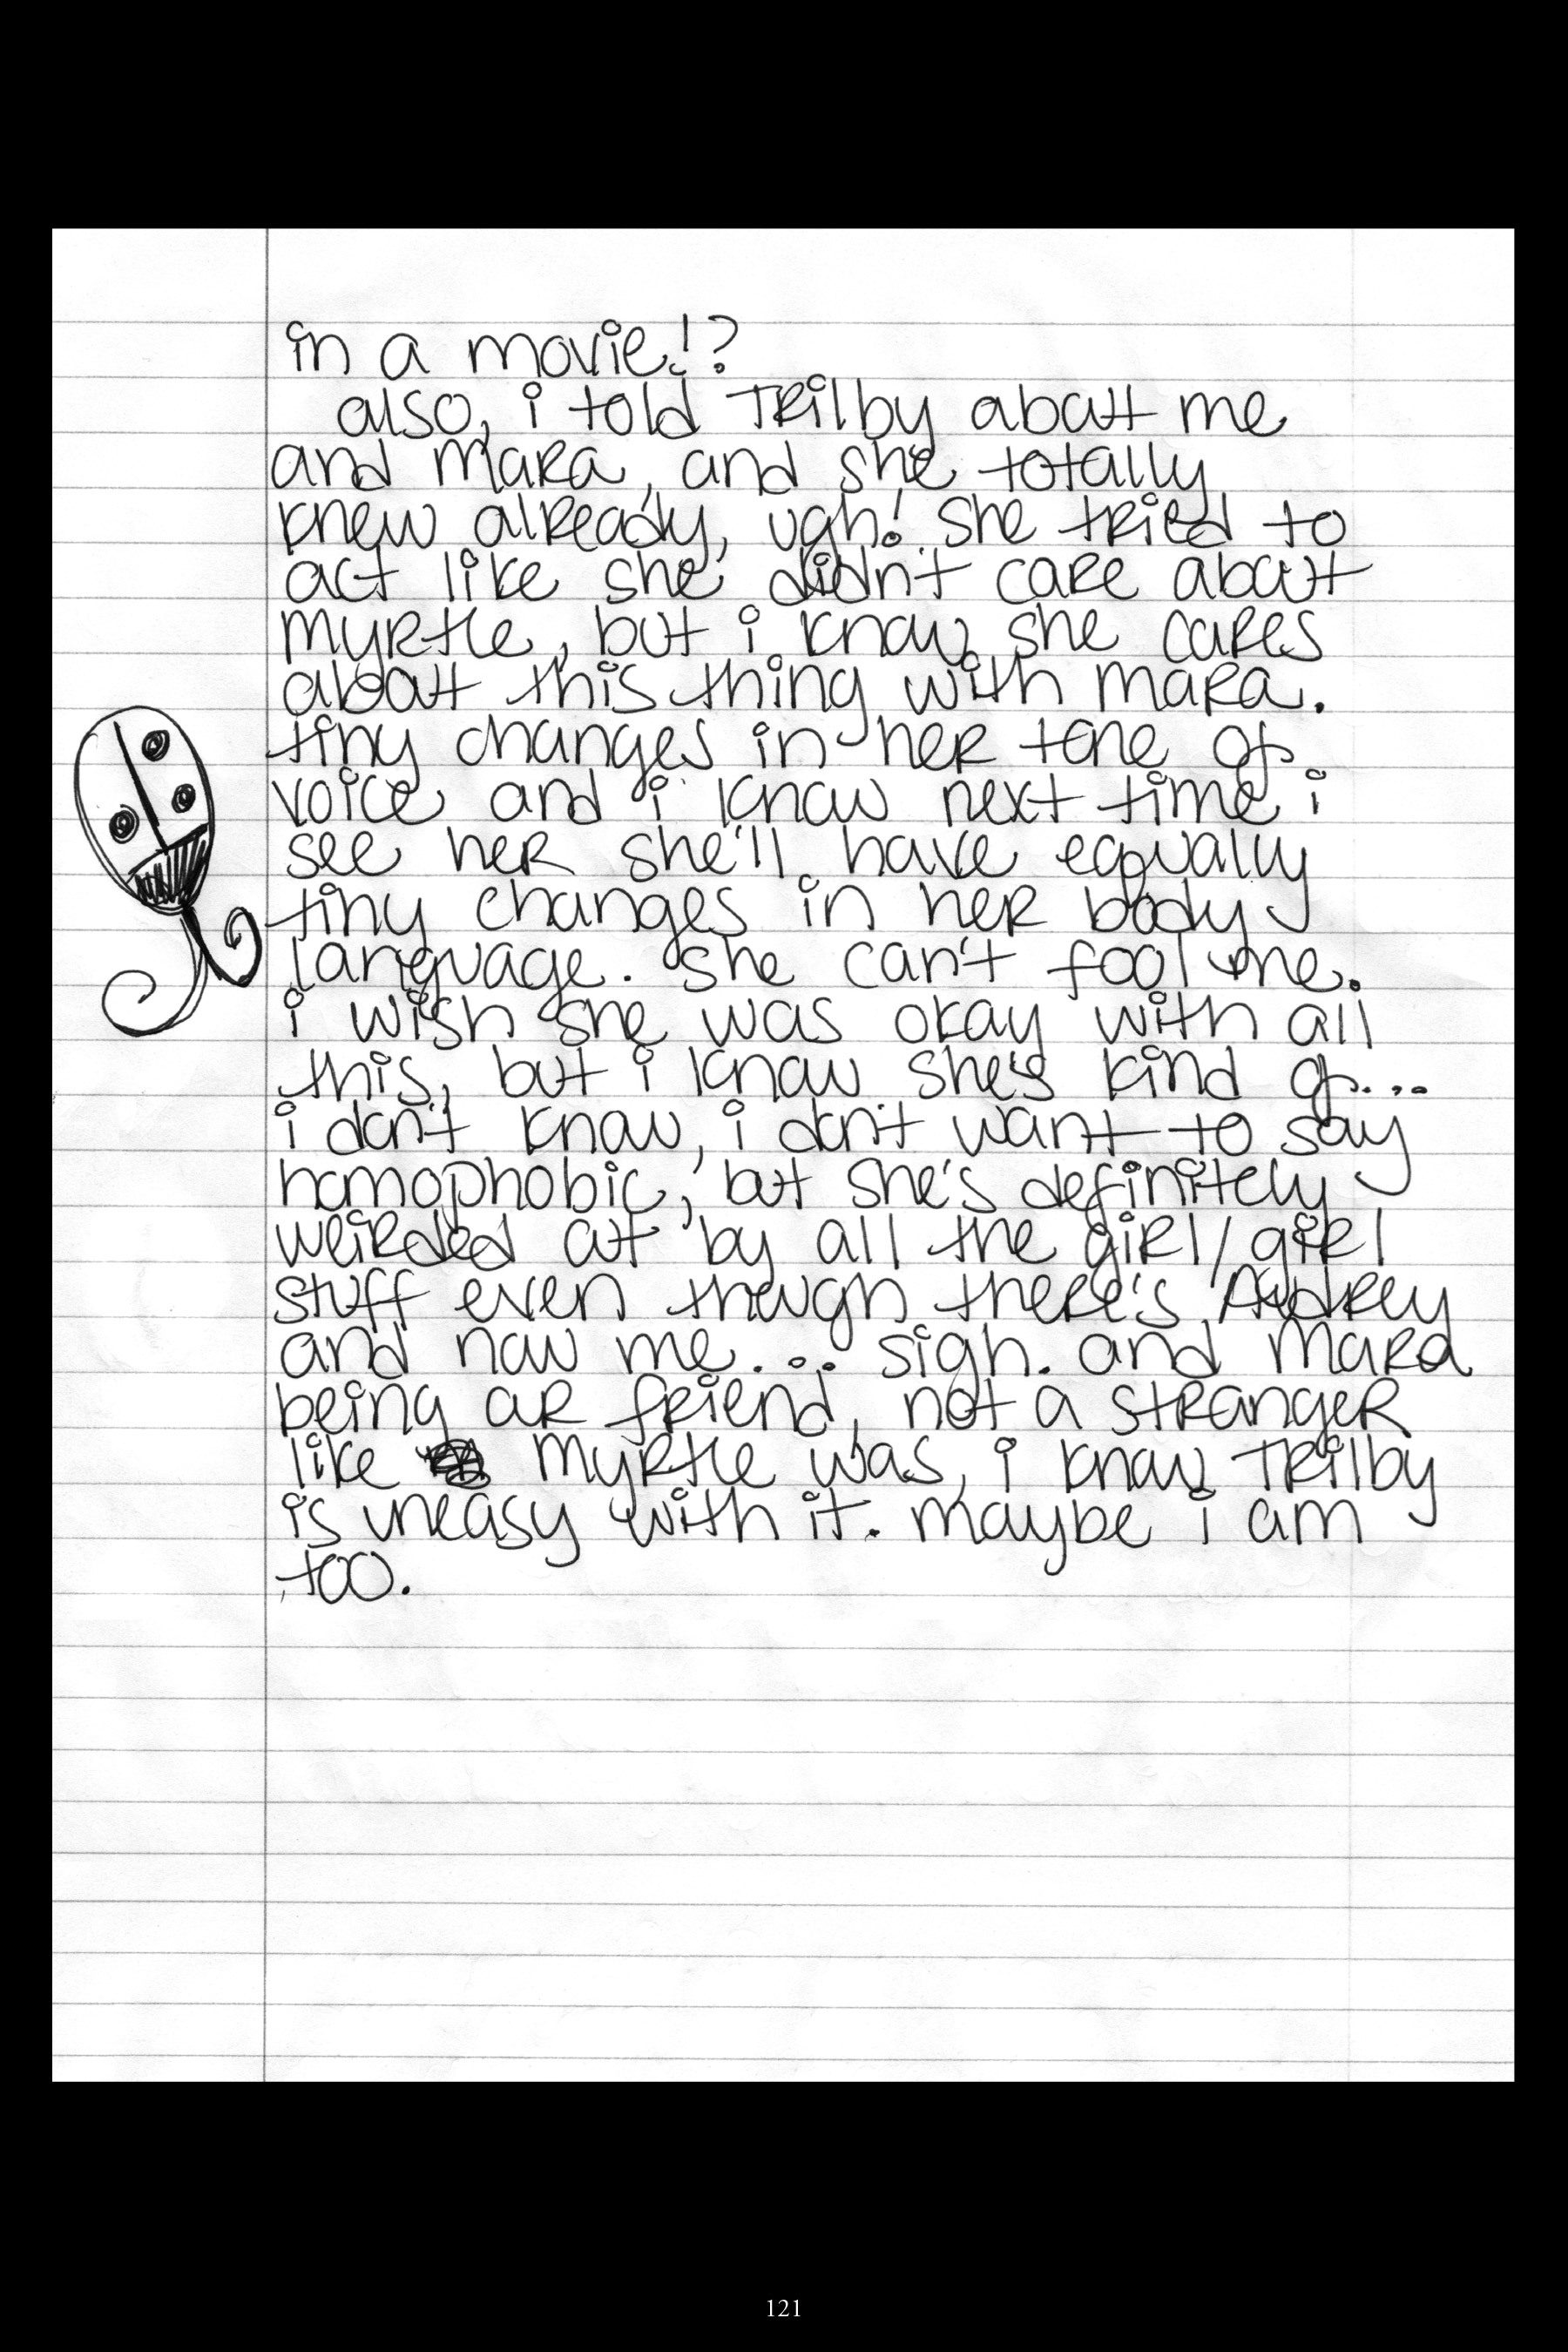 in a movie!?
also, i told Trilby about me
and mara, and she totally
knew already, ugh! she tried to
act like she didn't care about
myrtle, but i know she cares
about this thing with mara.
tiny changes in her tone of
voice and i know next time i
see her she'll have equally
tiny changes in her body
language. she can't fool me.
i wish she was okay with all
this, but i know she's kind of...
i don't know, i don't want to say
homophobic, but she's definitely
weirded out by all the girl/girl
stuff even though there's Audrey
and now me... sigh. and mara
being our friend, not a stranger
like myrtle was, i know Trilby
is uneasy with it. maybe i am
too.
121